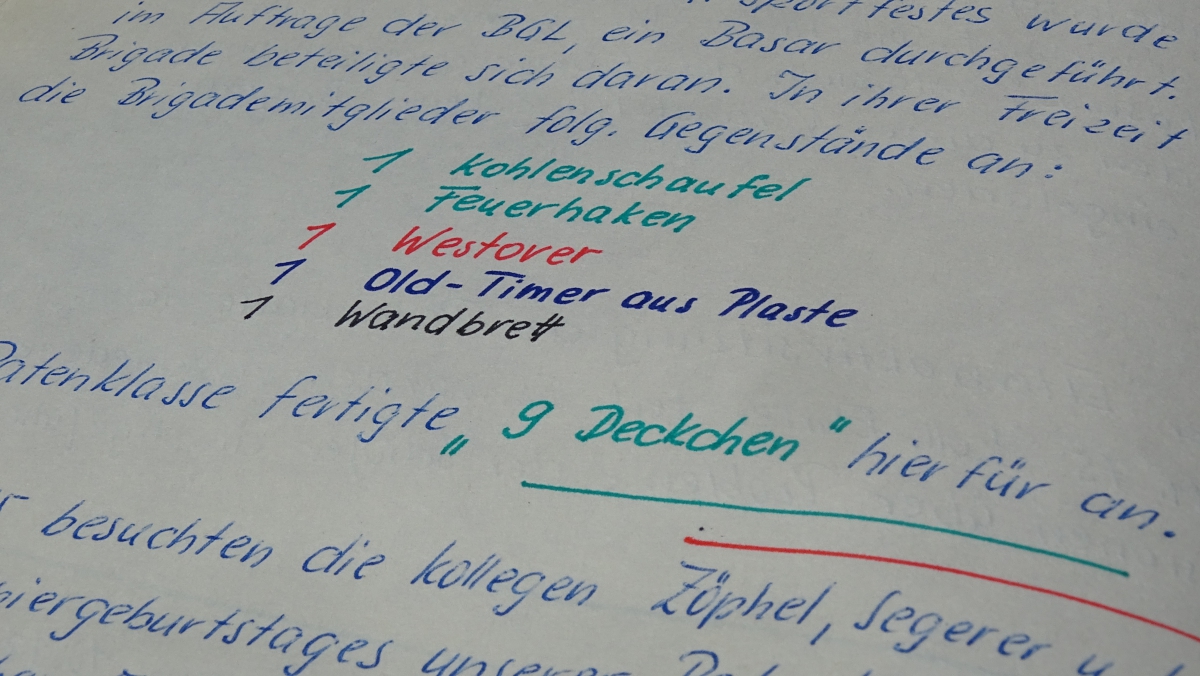 Sportfestes wurde
im Auftrage der BGL, ein Basar durchgeführt.
Brigade beteiligte sich daran. In ihrer Freizeit
die Brigademitglieder folg. Gegenstände an:
1 Kohlenschaufel
1 Feuerhaken
1 Westover
1 Old-Timer aus Plaste
1 Wandbrett
Patenklasse fertigte „9 Deckchen" hierfür an.
besuchten die Kollegen Zöphel, Segerer
niergeburtstages unserer